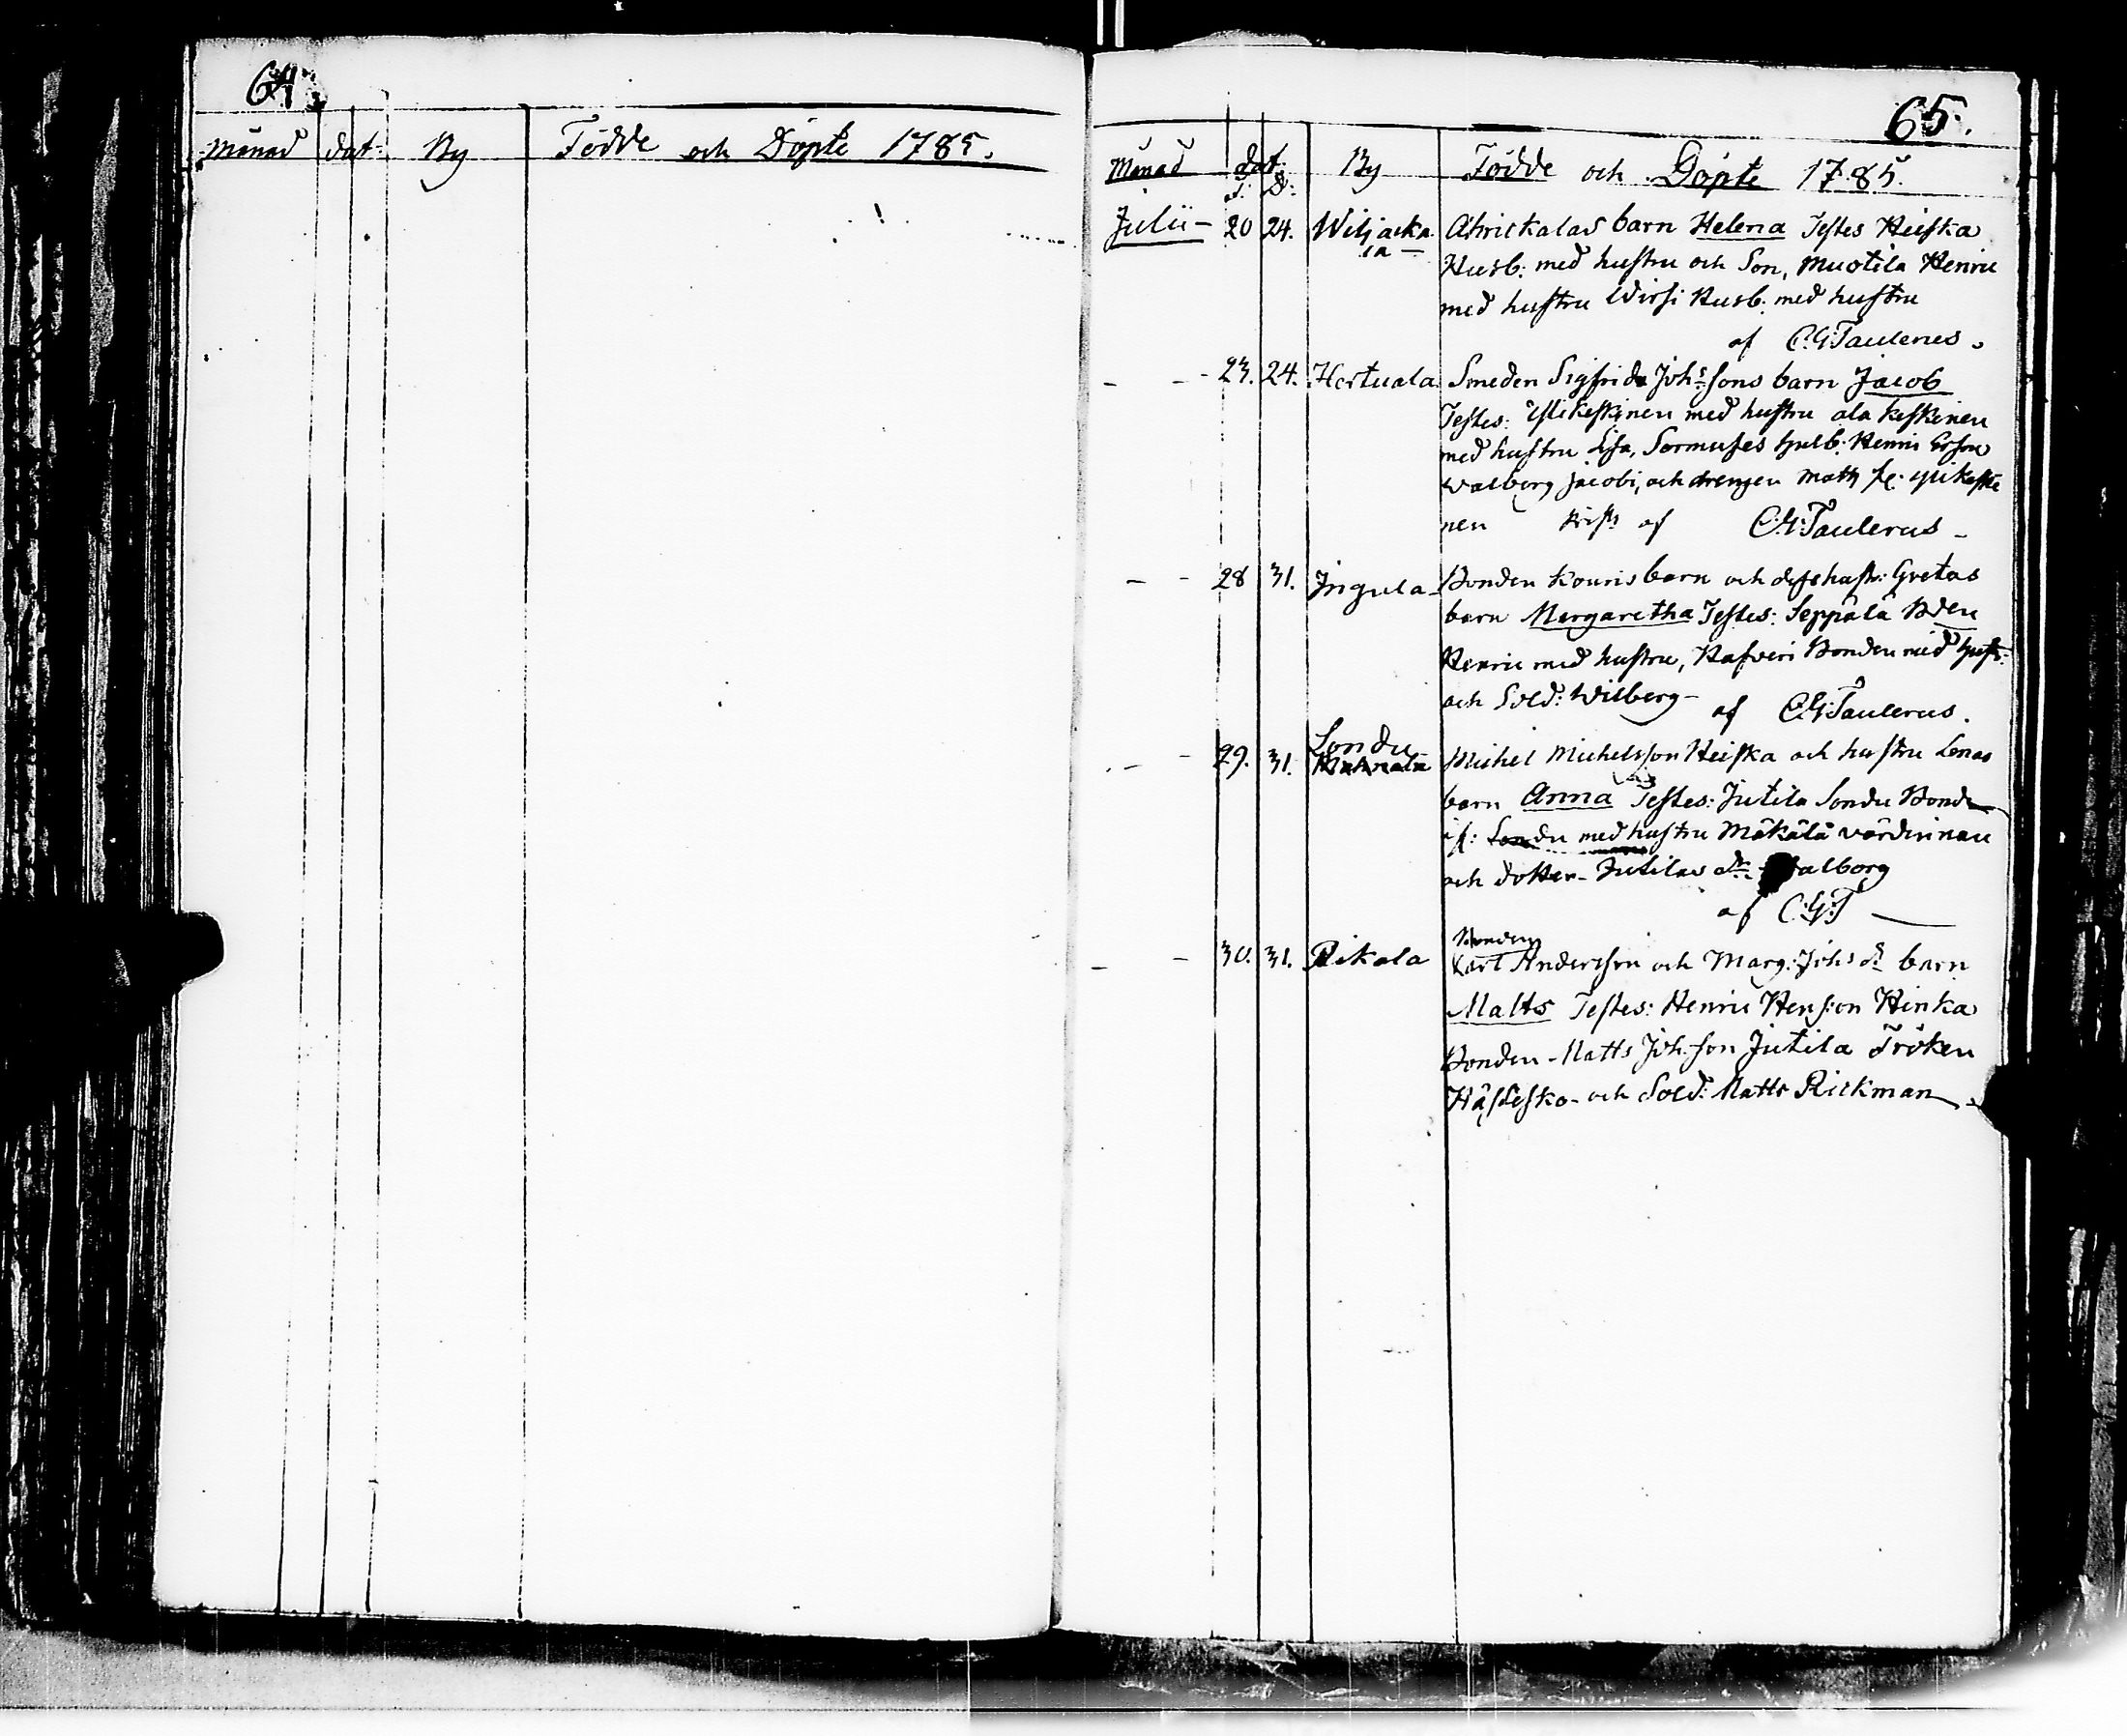 64
Månad dat: By Födde och Döpte 1785.
65.
Månad dat. By Födde och Döpte 1785.
f: D:
Julii – 20 24. Wiljacka Ahrickalas barn Helena Testes Heiska
la – Husb: med hustru och Son, Muotila Henric
med hustru Wirsi Husb. med hustru
af C.G. Taulerus.
– – 23. 24. Hertuala Smeden Sigfrids Johssons barn Jacob
Testes: Ylikeskinen med hustru ala keskinen
med hustru Lisa, Sormuses Husb: Henric Ersson
Walborg Jacobi, och drengen Math ylikeski
nen af C:G: Taulerus –
– – 28 31. Jngula Bonden Kouris barn och dess hustr: Gretas
barn Margaretha Testes: Seppälä Bden
Henric med hustru, Hafveri Bonden med hust:
och Sold: Wilberg – af C:G: Taulerus.
– – 29. 31. Sondu Michel Michelsson Heiska och hustru Lenas
barn Anna Testes: Jutila Sondu Bonde
Sondu med hustru Mäkälä värdinnan
och dotter – Jutilas dr: Walborg
af C:G:T
– – 30. 31. Rikala Bonden
Karl Andersson och Marg: Johs dr barn
Matts Testes: Henric Henson Hinka
Bonden – Matts Joh:son Jutila Fröken
Hästesko – och Sold: Matts Rickman